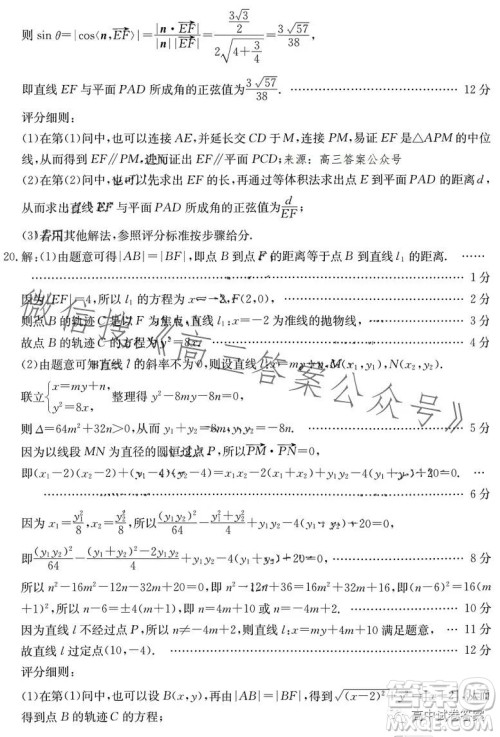 则 sin θ=|cos⟨n,EF⟩|=|n·EF|/(|n||EF|)=(3√3/2)/(2√(4+3/4))=3√57/38,
即直线 EF 与平面 PAD 所成角的正弦值为 3√57/38. 12 分
评分细则:
(1)在第(1)问中,也可以连接 AE,并延长交 CD 于 M,连接 PM,易证 EF 是△APM 的中位
线,从而得到 EF∥PM,进而证出 EF∥平面 PCD;来源:高三答案公众号
(2)在第(2)问中,也可以先求出 EF 的长,再通过等体积法求出点 E 到平面 PAD 的距离 d,
从而求出直线 EF 与平面 PAD 所成角的正弦值为 d/EF;
(3)若用其他解法,参照评分标准按步骤给分.
20.解:(1)由题意可得|AB|=|BF|,即点 B 到点 F 的距离等于点 B 到直线 l₁ 的距离.
1 分
因为|EF|=4,所以 l₁ 的方程为 x=-2,F(2,0), 2 分
则点 B 的轨迹 C 是以 F 为焦点,直线 l₁:x=-2 为准线的抛物线, 3 分
故点 B 的轨迹 C 的方程为 y²=8x. 4 分
(2)由题意可知直线 l 的斜率不为 0,则设直线 l:x=my+n,M(x₁,y₁),N(x₂,y₂).
联立{x=my+n, y²=8x, 整理得 y²-8my-8n=0,
则 Δ=64m²+32n>0,从而 y₁+y₂=8m,y₁y₂=-8n. 5 分
因为以线段 MN 为直径的圆恒过点 P,所以 PM·PN=0,
即(x₁-2)(x₂-2)+(y₁-4)(y₂-4)=x₁x₂-2(x₁+x₂)+y₁y₂-4(y₁+y₂)+20=0.
6 分
因为 x₁=y₁²/8,x₂=y₂²/8,所以(y₁y₂)²/64-(y₁²+y₂²)/4+y₁y₂-4(y₁+y₂)+20=0,
即(y₁y₂)²/64-((y₁+y₂)²-2y₁y₂)/4+y₁y₂-4(y₁+y₂)+20=0, 8 分
所以 n²-16m²-12n-32m+20=0,即 n²-12n+36=16m²+32m+16,即(n-6)²=16(m
+1)²,所以 n-6=±4(m+1),即 n=4m+10 或 n=-4m+2. 10 分
因为直线 l 不经过点 P,所以 n≠-4m+2,则直线 l:x=my+4m+10 满足题意, 11 分
故直线 l 过定点(10,-4). 12 分
评分细则:
(1)在第(1)问中,也可以设 B(x,y),再由|AB|=|BF|,得到√((x-2)²+y²)=|x+2|,从而
得到点 B 的轨迹 C 的方程;
微信搜《高三答案公众号》
高中试卷答案